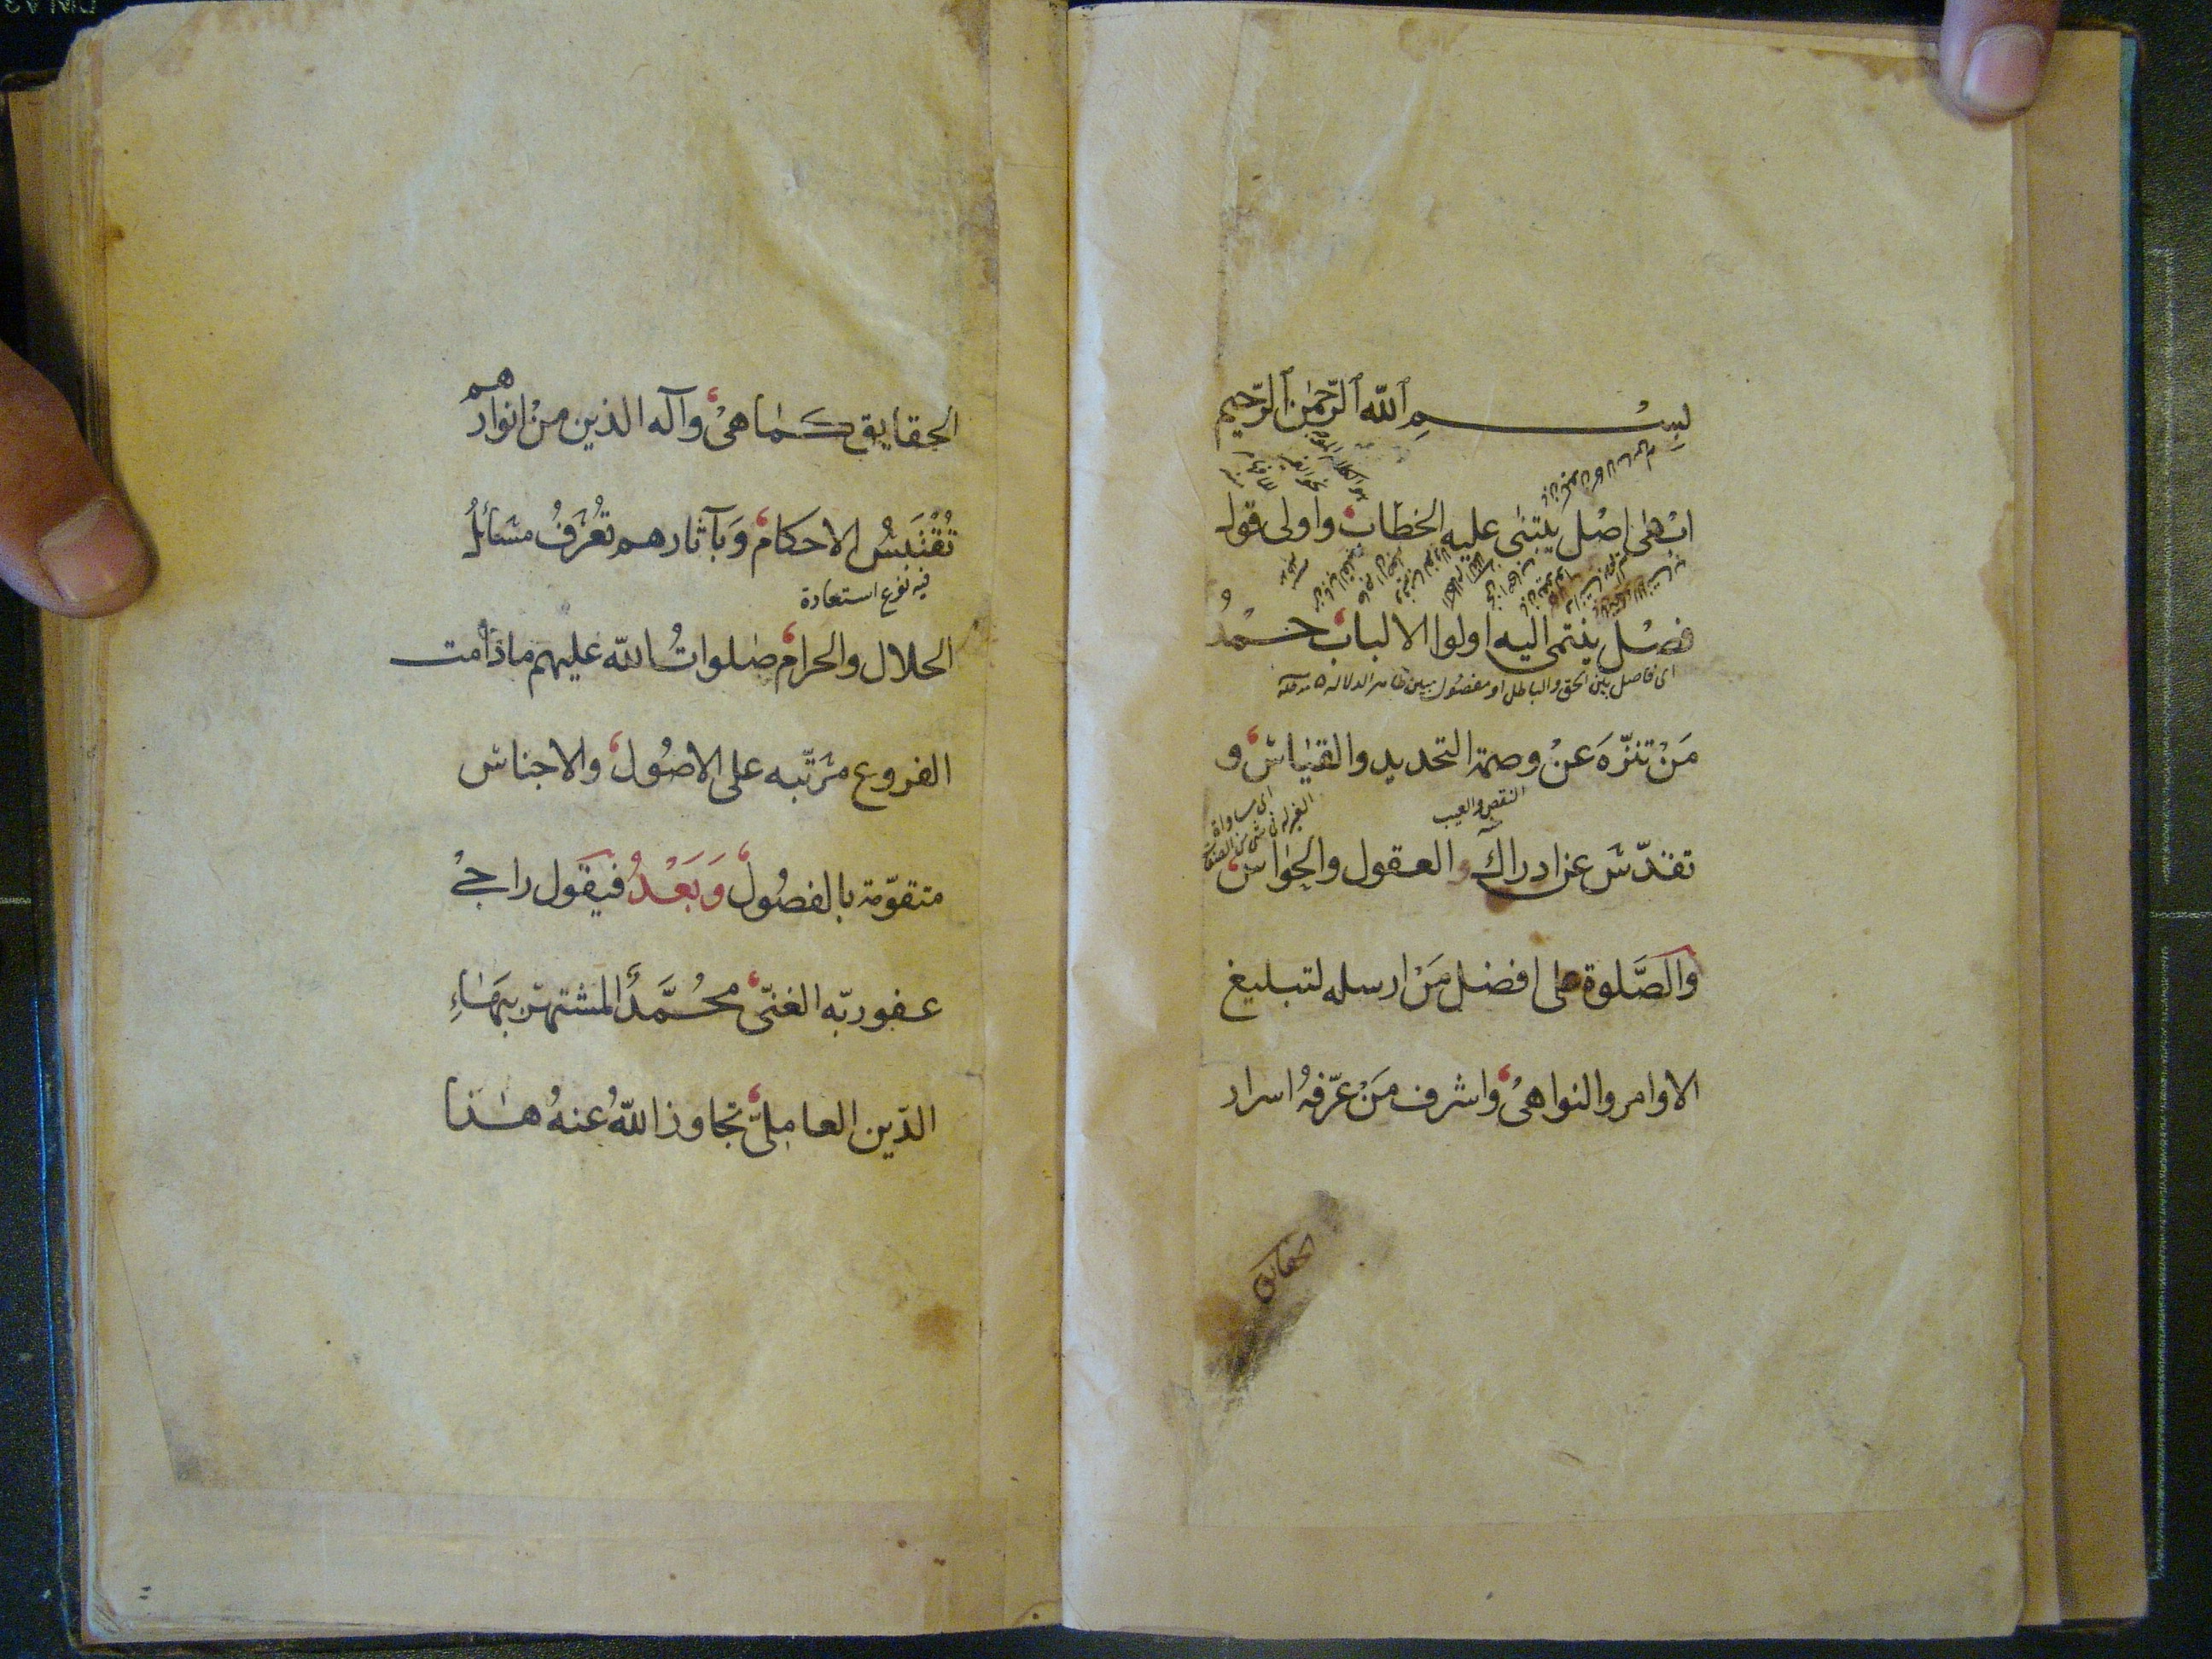 بسم الله الرحمن الرحيم
ابهى اصل يبتنى عليه الخطاب واولى قول
فصل ينتمى اليه اولوا الالباب حمدُ
اى فاصل بين الحق والباطل او مفصول مبين ظاهر الدلالة
مَنْ تنزّهَ عنْ وصمة التحديد والقياس و
النقص والعيب
اى مساواة
الغير له فى شى من الصفات
تقدّس عن ادراك العقول والحواس
والصَّلوة على افضل مَنْ ارسله لتبليغ
الاوامر والنواهى واشرف مَنْ عرّفهُ اسرار
الحقايق
الحقايق كما هى وآله الذين منْ انوارهم
تُقْتَبَسُ الاحكام وَبآثارهم تُعْرَفُ مسَائلُ
فيه نوع استعارة
الحلال والحرام صلواتُ الله عليهم ما دامت
الفروع مرتّبه على الاصُول والاجناس
متقوّمة بالفصُول وَبَعْدُ فيقول راجى
عفو ربّه الغنىّ محُمَّدٌ المشتهر ببهَاءِ
الدّين العاملىّ تجاوز اللهُ عنهُ هذا